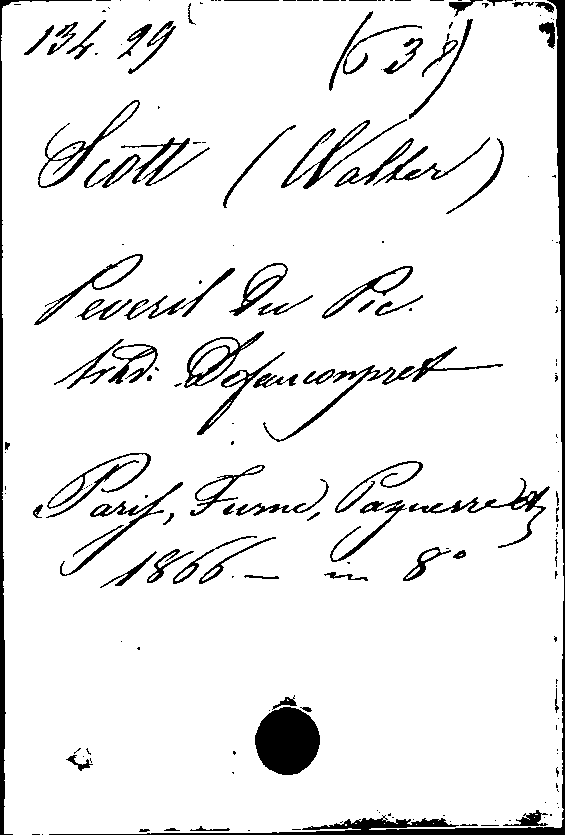 134.29 (538)
Scott (Walter)
Peveril du Pic.
trad: Defauconpret
Paris, Furne, Pagnerre et
1866 — in 8°